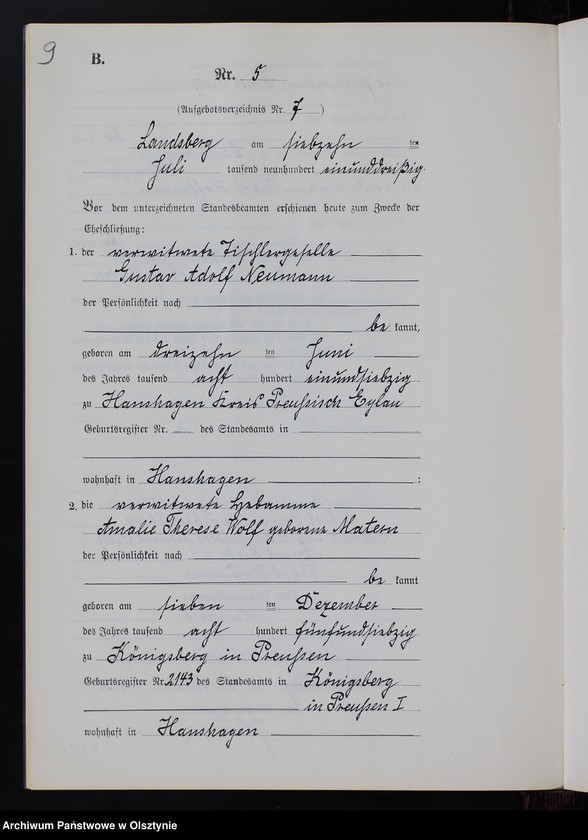 9
B.
Nr. 5
(Aufgebotsverzeichnis Nr. 7)
Landsberg am siebzehn ten
Juli tausend neunhundert einunddreißig.
Vor dem unterzeichneten Standesbeamten erschienen heute zum Zwecke der
Eheschließung:
1. der verwitwete Tischlergeselle
Gustav Adolf Neumann
der Persönlichkeit nach
be kannt,
geboren am dreizehn ten Juni
des Jahres tausend acht hundert einundsiebzig
zu Hanshagen Kreis Preußisch Eylau
Geburtsregister Nr. des Standesamts in
wohnhaft in Hanshagen :
2. die verwitwete Hebamme
Amalie Therese Wolf geborene Matern
der Persönlichkeit nach
be kannt
geboren am sieben ten Dezember
des Jahres tausend acht hundert fünfundsiebzig
zu Königsberg in Preußen
Geburtsregister Nr. 2143 des Standesamts in Königsberg
in Preußen I
wohnhaft in Hanshagen
Archiwum Państwowe w Olsztynie